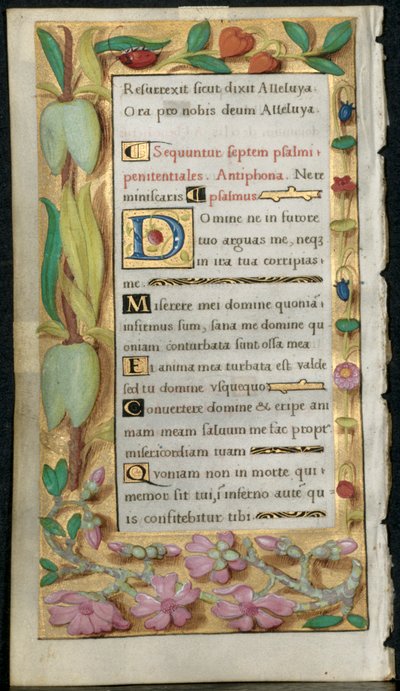 Resurrexit sicut dixit Alleluya.
Ora pro nobis deum Alleluya.
Sequuntur septem psalmi
penitentiales. Antiphona. Nere
miniscaris psalmus
Domine ne in furore
tuo arguas me, neqȝ
in ira tua corripias
me.
Miserere mei domine quoniã
infirmus sum, sana me domine qu
oniam conturbata sunt ossa mea
Et anima mea turbata est valde
sed tu domine vsquequo
Conuertere domine & eripe ani
mam meam saluum me fac propt
misericordiam tuam
Quoniam non in morte qui
memor sit tui, ĩ inferno autẽ qu
is confitebitur tibi.